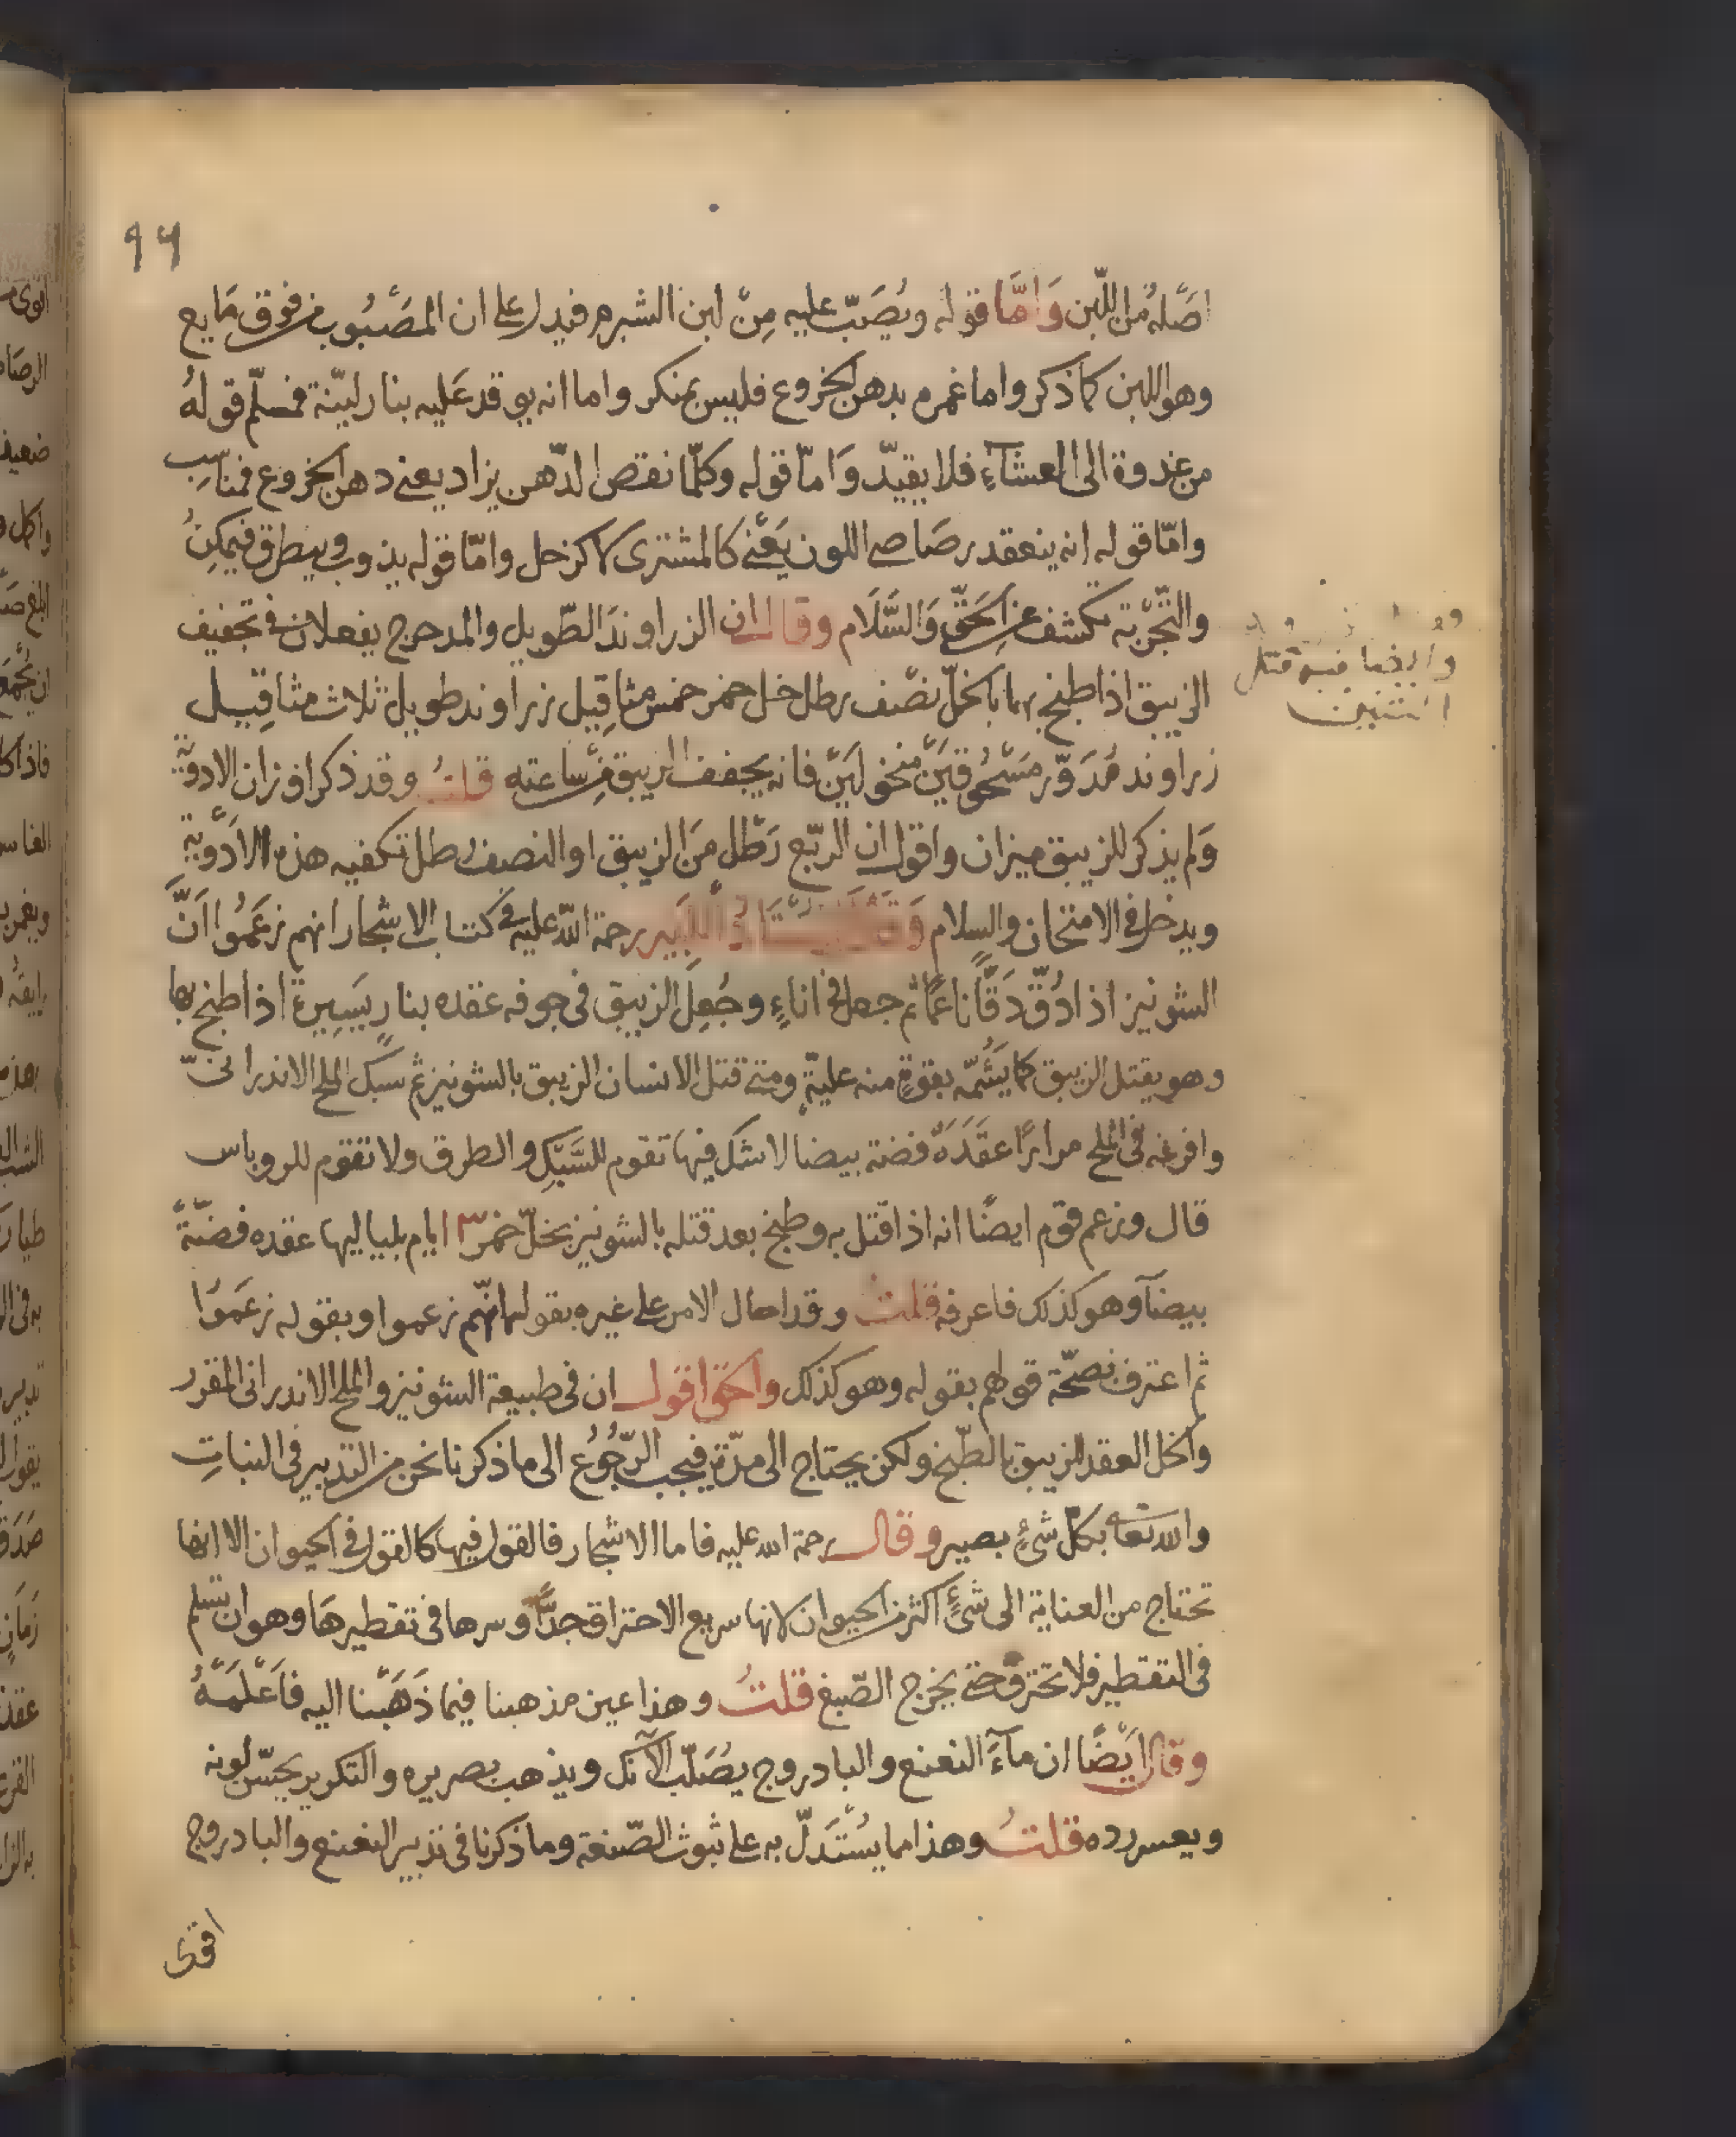 ٩٦
اصله من اللبن وَامّا قوله ويُصَبّ عليه مِنْ لبن الشبرم فيدل على ان المَصْبُوب من فوق مَايع
وهو اللبن كما ذكر واما غمره بدهن الخروع فليس بمنكر واما انه يوقد عَليه بنار ليّنة فمسلّم قوله
من غدوة الى العشآءِ فلا يقيدّ وَامّا قوله وكلّما نقص الدّهن يزاد يعنى دهن الخروع فمناسِب
وامّا قوله انه ينعقد رصَاصى اللون يَعْنى كالمشترى لا كزحل وامّا قوله يذوب وينطرق فيمكِنُ
والتّجْربة تكشف عن الحَقّ وَالسَّلَام وقال ان الزراوندَ الطّويل والمدحرج يفعلان فى تجفيف
الزيبق اذا طبخ بهما بالخلّ نصْف رطل خل خمر خمس مثاقِيل زراوند طويل ثلاث مثاقِيل
زراوند مُدَوّر مَسْحُوقَيْن منخولَيْن فانه يجفف الزيبق من سَاعته قلتُ وقد ذكر اوزان الادويَة
وَلم يذكر للزيبق ميزان واقول ان الربّع رَطْل مَن الزيبق او النصف رطل تكفيه هذه الادَوْية
ويدخل فى الامتحان والسلام رحمة اللّه عليه فى كتاب الاشجار انهم زعَمُوا اَنَّ
الشونيز اذا دُقّ دَقًّا ناعمًا ثم جعل فى اناءٍ وجُعِلَ الزيبق فى جوفه عقده بنارٍ يَسِيرة اذا طبخ بها
وهو يقتل الزيبق كما يَشُمّه بقوةٍ منه عليةٍ ومتى قتل الانسان الزيبق بالشونيز ثم سبك الملح الاندرانىّ
وافرغه فى الملح مرارًا عقَدَهُ فضة بيضا لا شك فيها تقوم للسَّبْكِ والطرق ولا تقوم للروباس
قال وزعم قوم ايضًا انه اذا قتل به وطبخ بعد قتله بالشونيز بخلّ خمر ٣ ايام بلياليها عقده فضّةً
بيضآ وهو كذلك فاعرفه قلتُ وقد احال الامر على غيره بقوله انهّم زعموا وبقوله زعَمَوُا
ثم اعترف بصحّة قولهم بقوله وهو كذلك والحَق اقول ان فى طبيعة الشونيز والملح الاندرانى المقرر
والخل العقد للزيبق بالطّبخ ولكن يحتاج الى مدّة فيجب الرّجُوُع الى ما ذكرنا نحن من التدبير فى النباتِ
والله تعا بكلّ شىءٍ بصير وقال رحمة الله عليه فاما الاشجار فالقول فيها كالقول فى الحيوان الا انها
تحتاج من العناية الى شىءٍ اكثر من الحيوان لانها سريع الاحتراق جدًّا وسرها فى تقطيرهَا وهو ان تسلم
فى التقطير فلا تحترق حتى يخرج الصّبغ قلتُ وهذا عين مذهبنا فيما ذَهَبْنا اليه فَاعْلَمَهُ
وقال ايَضًا ان مآءَ النعنع والبادروج يُصَلّب الآنك ويذهب بصريره والتكرير يحسّن لونه
ويعسر رده قلتُ وهذا مما يسُتَدَلّ به على ثبوت الصّنعة وما ذكرنا فى تدبير النعنع والبادروج
اقوى
وايضا فيه قتل
اثنين